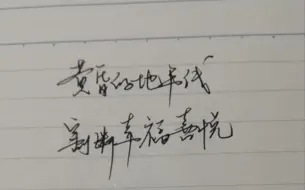 黄昏的地平线
割断幸福喜悦